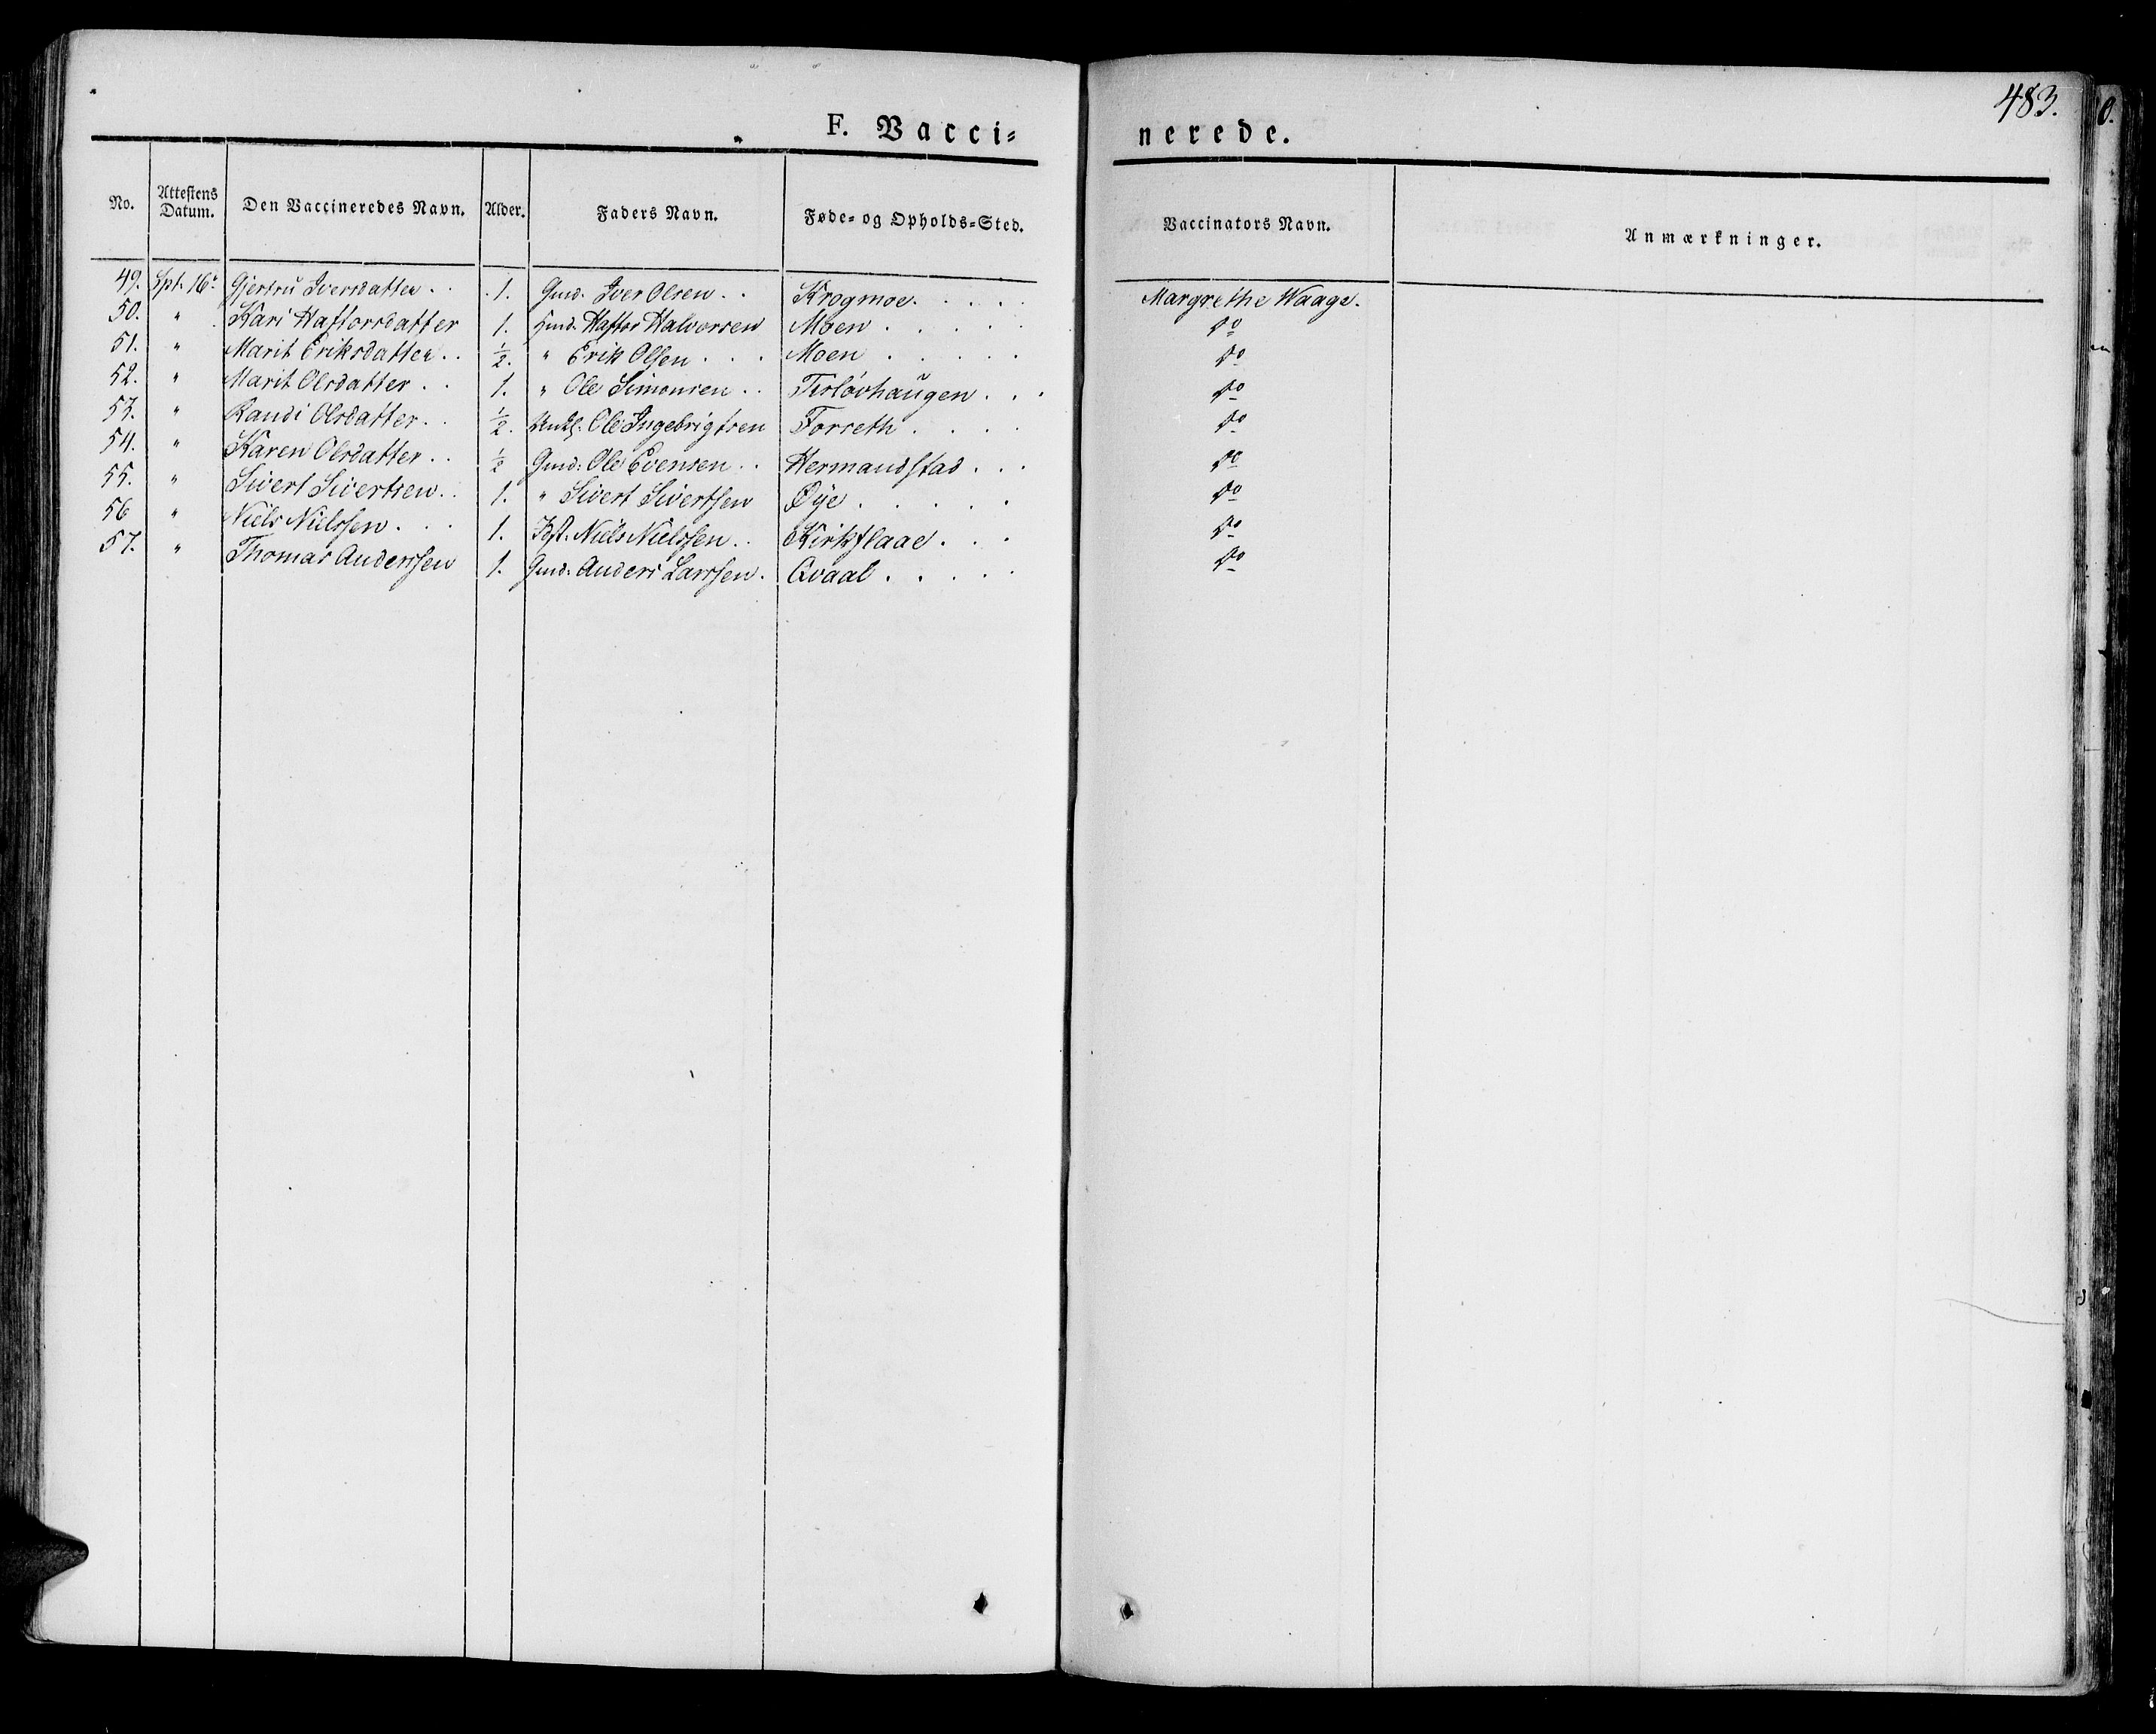 483.
F. Vacci= nerede.
No. | Attestens Datum. | Den Vaccineredes Navn. | Alder. | Faders Navn. | Føde= og Opholds=Sted. | Vaccinators Navn. | Anmærkninger.
49. | Spt. 16. | Gjertru Iversdatter . . | 1. | Gmd. Iver Olsen . . | Krogmoe . . . . . | Margrethe Waage.
50. | " | Kari Haftorsdatter | 1. | Hmd. Haftor Halvorsen | Moen . . . . . | do
51. | " | Marit Eriksdatter . . | ½. | " Erik Olsen . . . | Moen . . . . . | do
52. | " | Marit Olsdatter . . | 1. | " Ole Simonsen . . | Tesløvhaugen . . . | do
53. | " | Randi Olsdatter . . | ½. | Ole Ingebrigtsen | Forseth . . . . | do
54. | " | Karen Olsdatter . . | ½ | Gmd: Ole Evensen . . | Hermandstad . . . | do
55. | " | Sivert Sivertsen . . | 1. | " Sivert Sivertsen | Øye . . . . . | do
56 | " | Niels Nielssen . . . | 1. | Niels Nielssen . . | Kirkflaae . . . | do
57. | " | Thomas Anderssen | 1. | Gmd. Anders Larssen . | Qvaal . . . . . | do